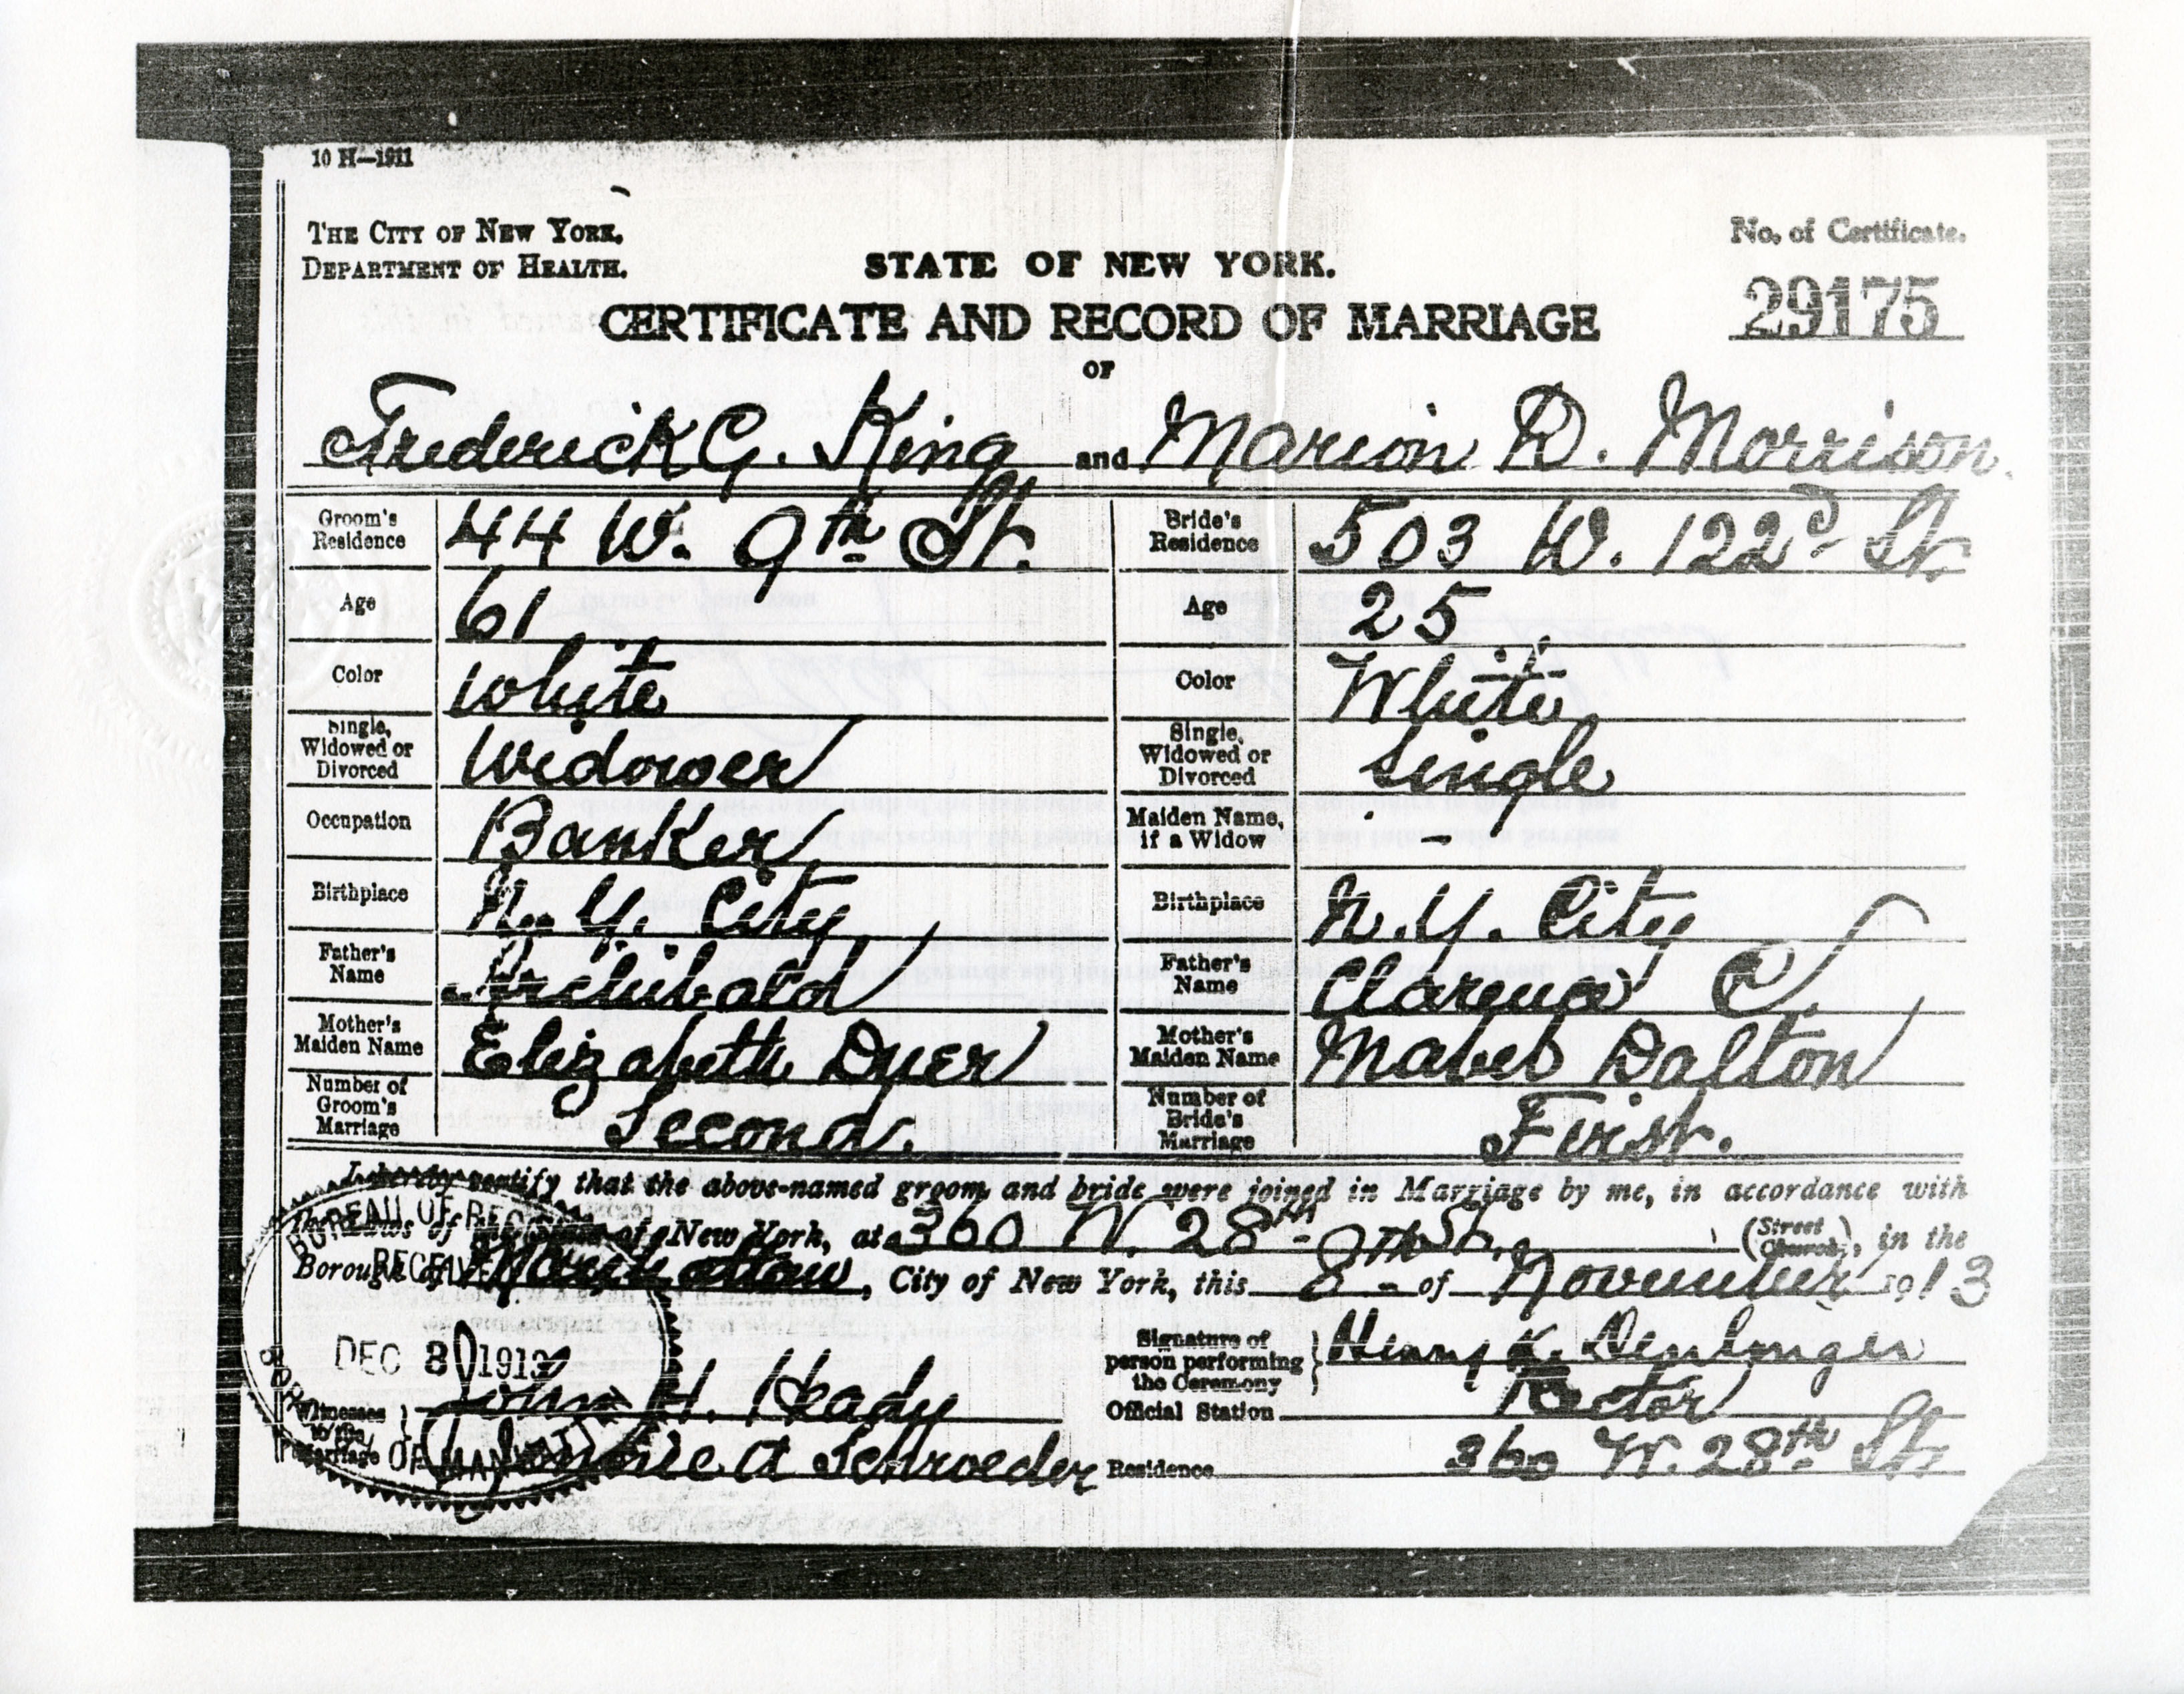 10 H—1911
THE CITY OF NEW YORK.
DEPARTMENT OF HEALTH.
STATE OF NEW YORK.
No. of Certificate.
29175
CERTIFICATE AND RECORD OF MARRIAGE
OF
Frederick G. King and Marion D. Morrison.
Groom's Residence 44 W. 9th St. Bride's Residence 503 W. 122d St
Age 61 Age 25
Color White Color White
Single, Widowed or Divorced Widower Single, Widowed or Divorced Single
Occupation Banker Maiden Name, if a Widow -
Birthplace N. Y. City Birthplace N. Y. City
Father's Name Archibald Father's Name Clarence C.
Mother's Maiden Name Elizabeth Dyer Mother's Maiden Name Mabel Dalton
Number of Groom's Marriage Second. Number of Bride's Marriage First.
I hereby certify that the above-named groom and bride were joined in Marriage by me, in accordance with
the Laws of the State of New York, at 360 W. 28th St. (Street Church), in the
Borough of Manhattan, City of New York, this 8th of November 1913
BUREAU OF RECORDS
RECEIVED
DEC 8 1913
OF MANHATTAN
Signature of person performing the Ceremony Henry K.
Official Station Rector
Witnesses to the Marriage John H. Heady
A Schroeder
Residence 360 W. 28th St.